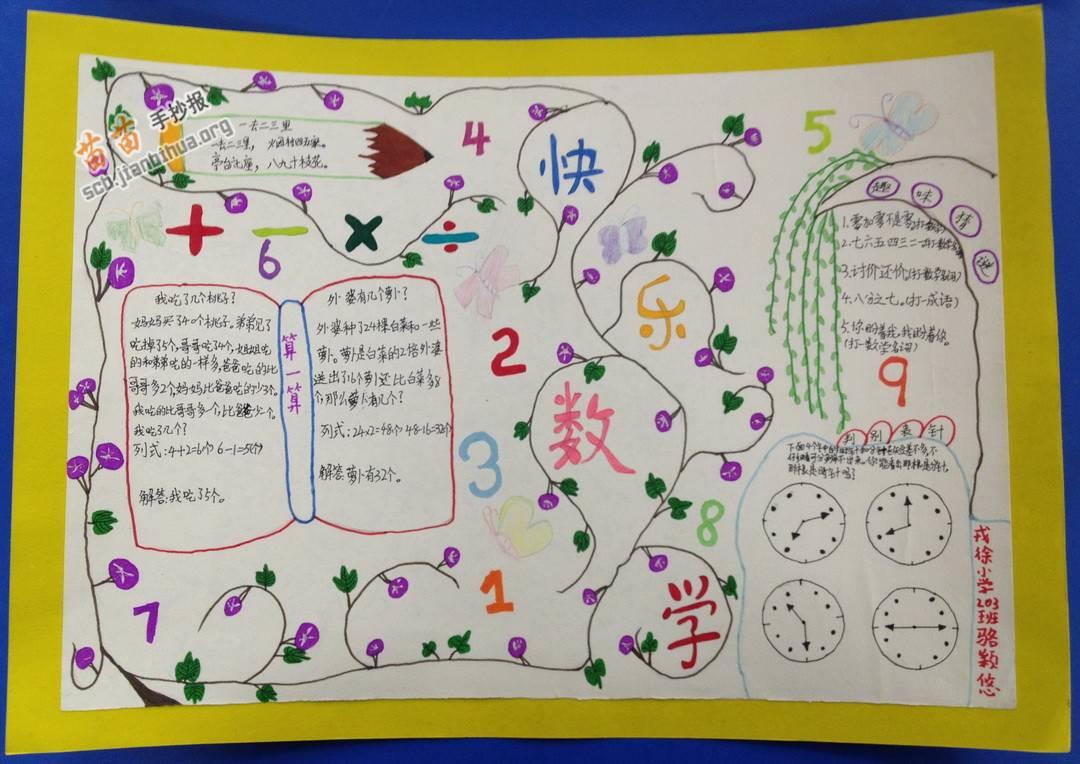 苗苗手抄报
scb.jianbihua.org
一去二三里
一去二三里，烟村四五家。
亭台七座，八九十枝花。
4
快
5
趣味猜谜
1.零加零不是零(打数学)
2.七六五四三二一(打数学名词)
3.讨价还价(打数学名词)
4.八分之七。(打一成语)
5.你盼着我,我盼着你。
(打一数学名词)
+
－
×
÷
6
乐
我吃了几个桃子？
妈妈买了40个桃子。弟弟见了
吃掉了5个，哥哥吃了4个，姐姐吃
的和弟弟吃的一样多，爸爸吃的比
哥哥多2个，妈妈比爸爸吃的少3个。
我吃的比哥哥多一个，比爸爸少一个。
我吃了几个？
列式:4+2=6个 6-1=5(个)
解答:我吃了5个。
算一算
外婆有几个萝卜？
外婆种了24棵白菜和一些
萝卜。萝卜是白菜的2倍外婆
送出了16个萝卜还比白菜多8
个，那么萝卜有几个？
列式:24×2=48个 48-16=32个
解答:萝卜有32个。
2
9
数
3
判别表针
8
7
1
学
戎徐小学203班骆颖悠